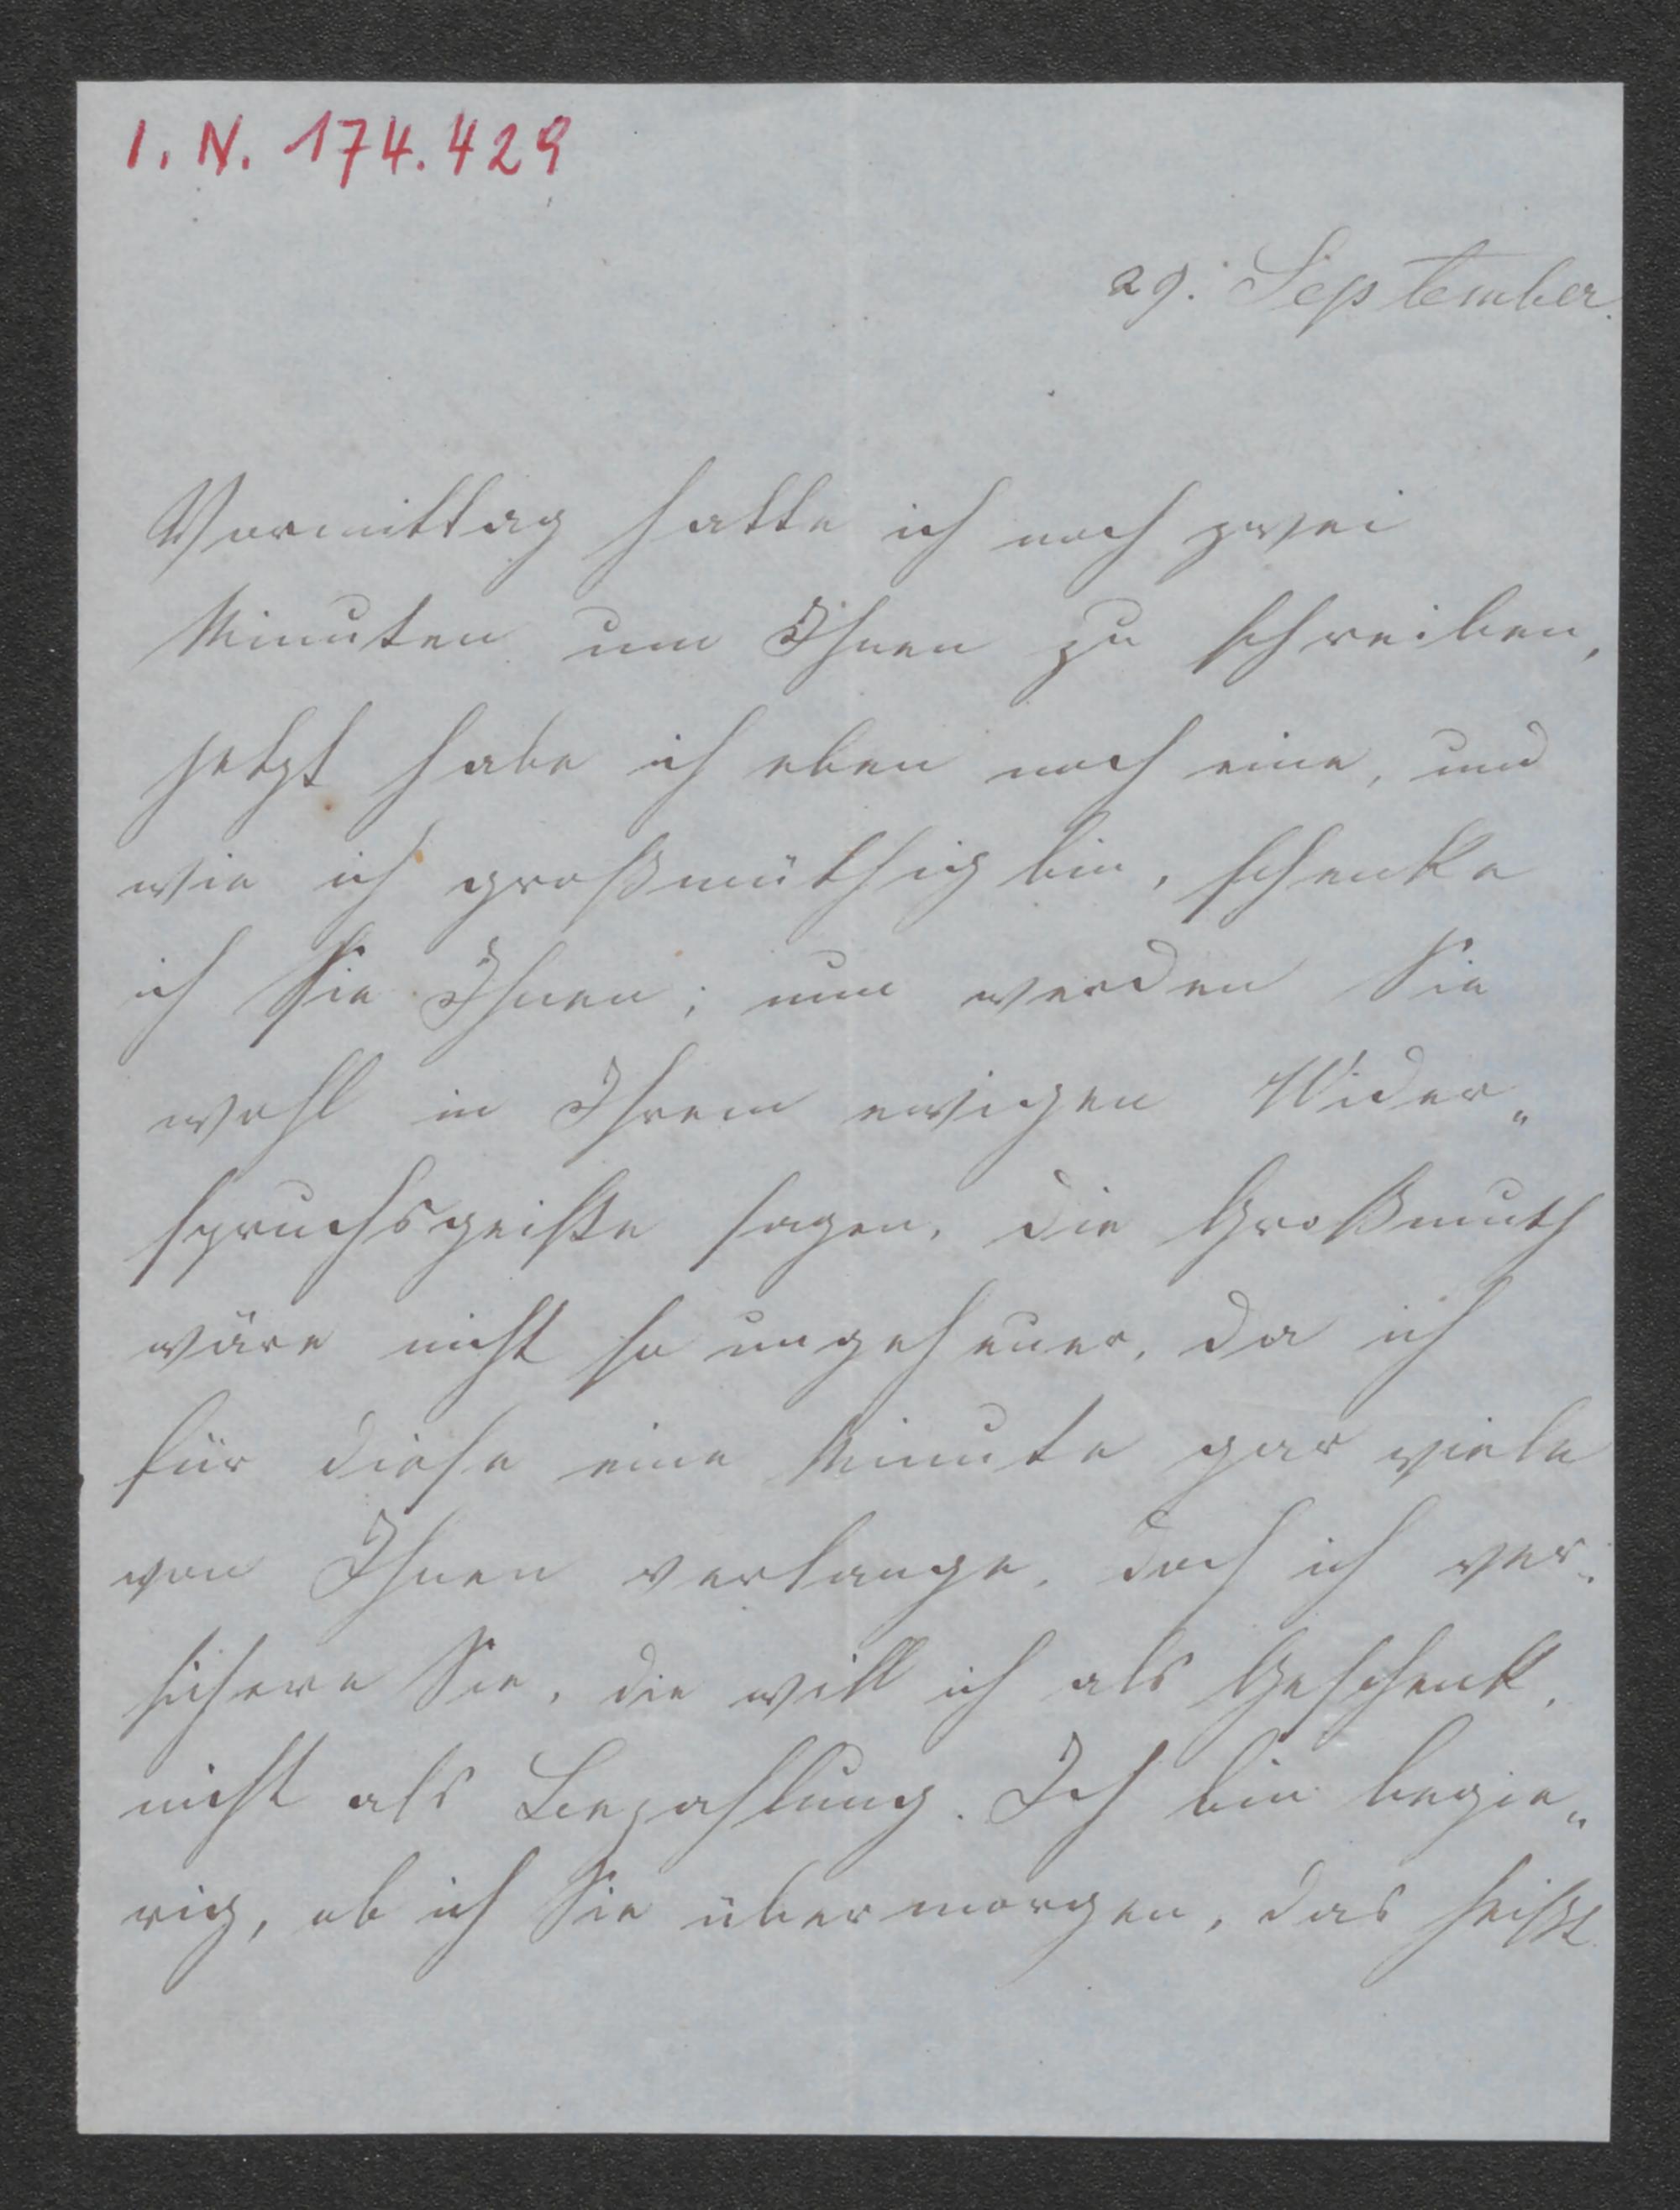 I. N. 174.429
29. September.
Vormittag hatte ich noch zwei
Minuten um Ihnen zu schreiben,
jetzt habe ich eben noch eine, und
wie ich großmüthig bin, schenke
ich Sie Ihnen; nun werden Sie
wohl in Ihrem ewigen Wider„
spruchsgeiste sagen, die Großmuth
wäre nicht so ungeheuer, da ich
für diese eine Minute gar viele
von Ihnen verlange, doch ich ver„
sichere Sie, die will ich als Geschenk,
nicht als Bezahlung. Ich bin begie„
rig, ob ich Sie übermorgen, das heißt